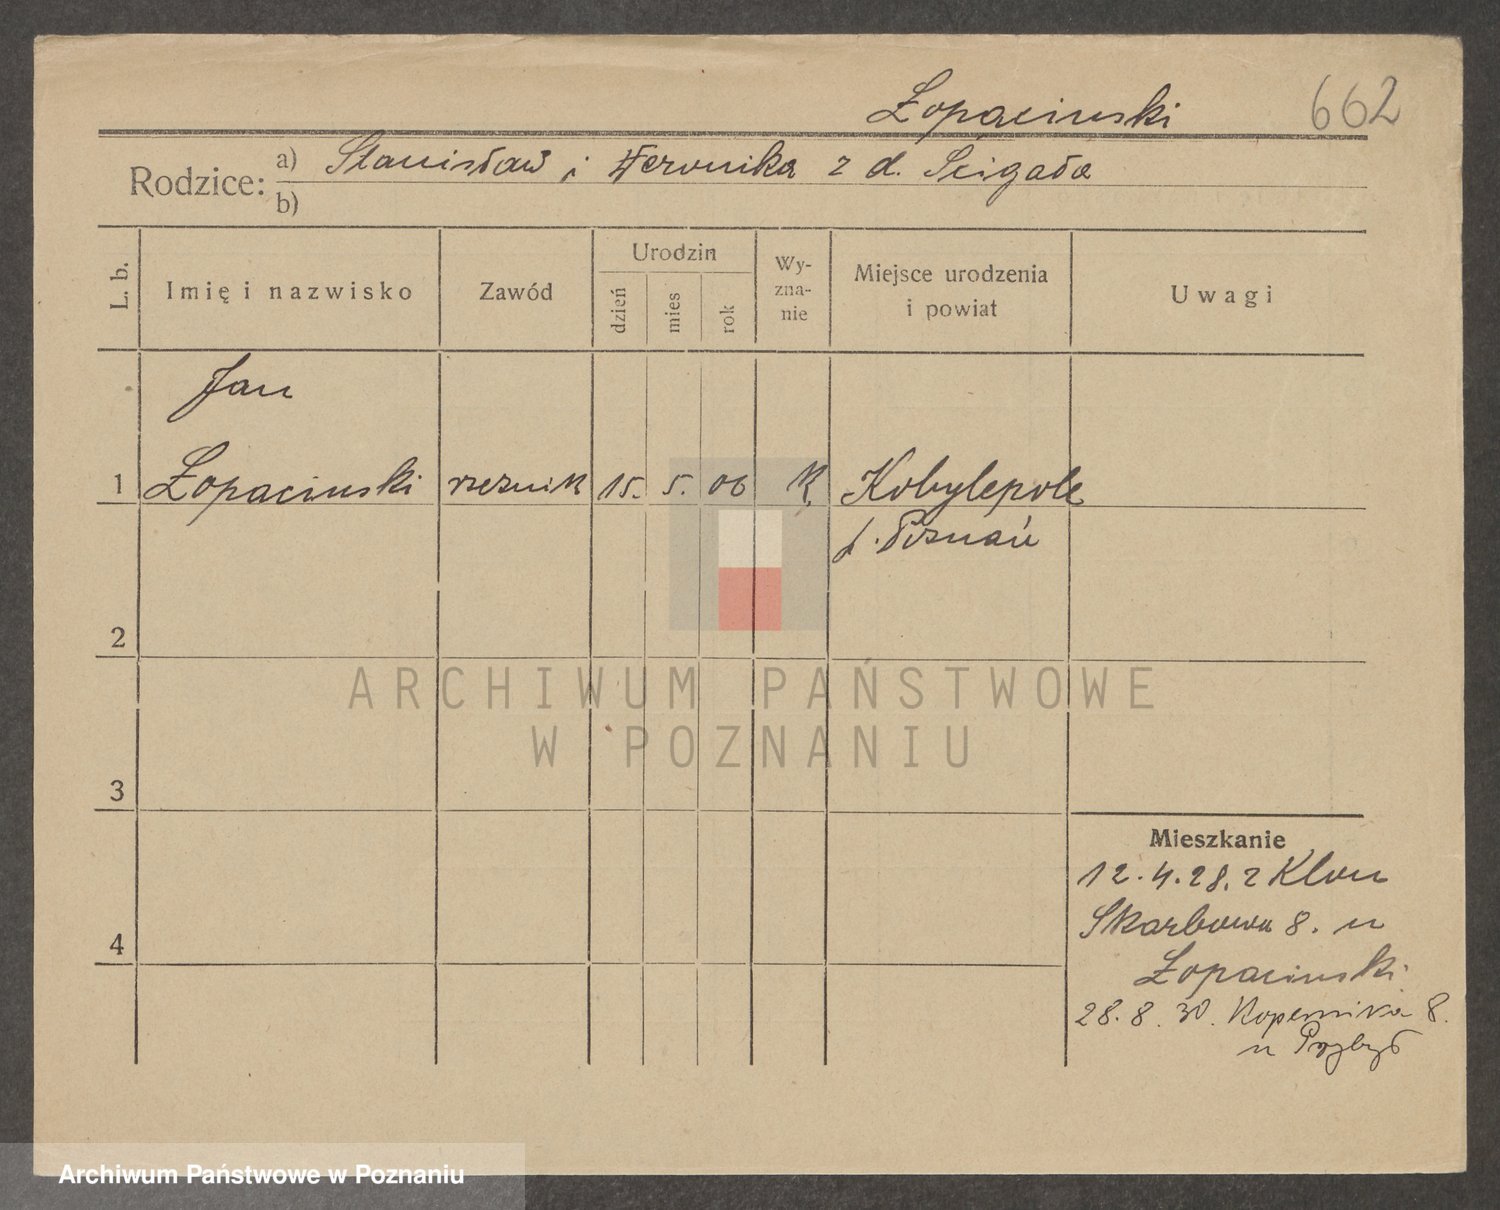 Łopacinski 662
Rodzice: a) Stanisław i Weronika z d. Scigała
b)
L. b. Imię i nazwisko Zawód Urodzin dzień mies rok Wyznanie Miejsce urodzenia i powiat Uwagi
Jan
1 Łopacinski rzeznik 15. 5. 06 K Kobylepole
p. Poznań
2
3
Mieszkanie
12.4.28. z Klon
4 Skarbowa 8. u
Łopacinski
28.8.30. Kopernika 8.
u Przybył
ARCHIWUM PAŃSTWOWE
W POZNANIU
Archiwum Państwowe w Poznaniu